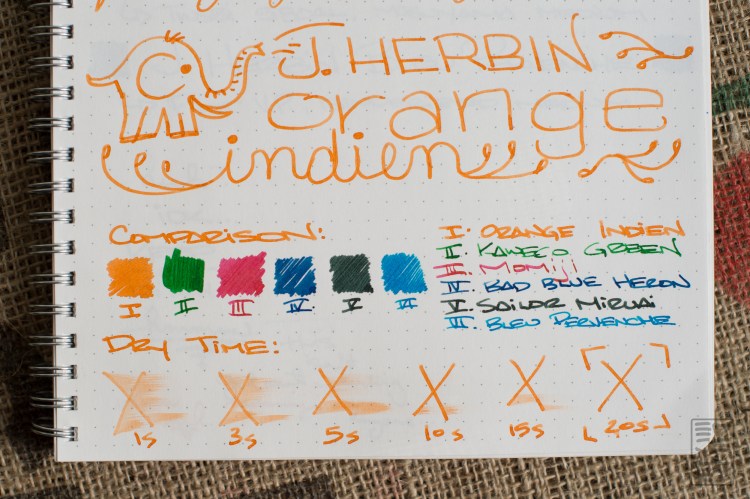 J. HERBIN
orange
indien
COMPARISON:
I II III IV. V VI
I. ORANGE INDIEN
II KAWECO GREEN
III. MOMIJI
IV. BAD BLUE HERON
V. SAILOR MIRUAI
VI: BLEU PERVENCHE
DRY TIME:
X X X X X X
1s 3s 5s 10s 15s 20s